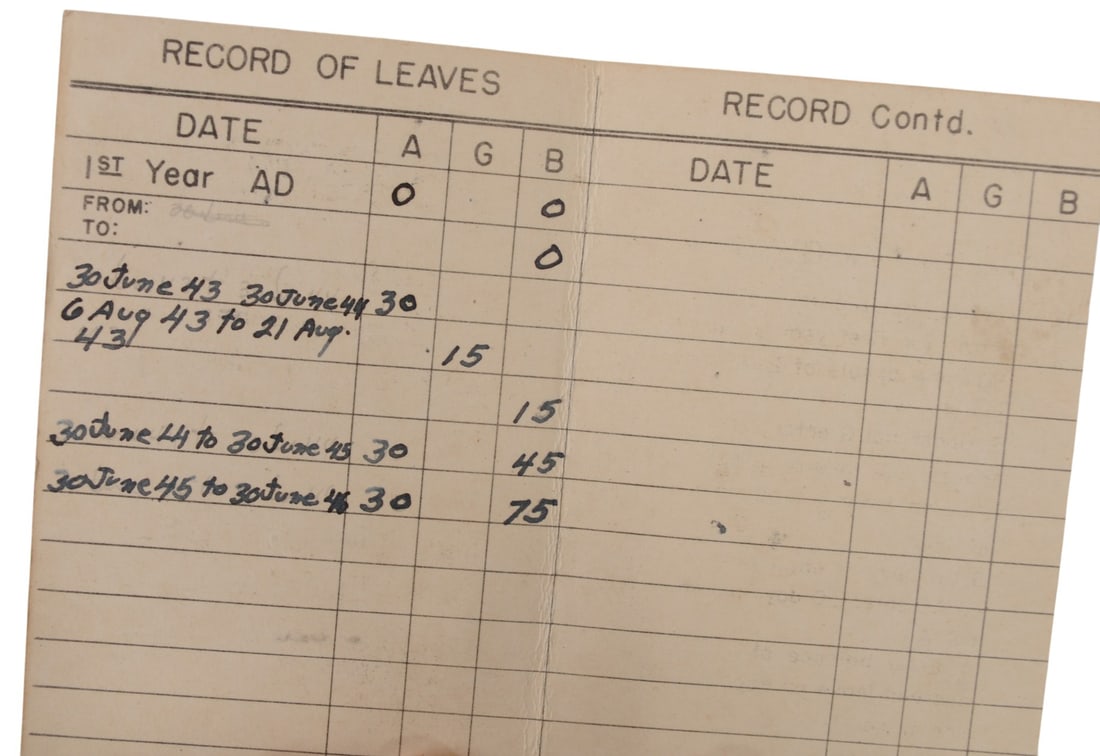 RECORD OF LEAVES
DATE A G B
1ST Year AD 0 0
FROM:
TO: 0
30 June 43 30 June 44 30
6 Aug 43 to 21 Aug.
43 15
15
30 June 44 to 30 June 45 30 45
30 June 45 to 30 June 46 30 75
RECORD Contd.
DATE A G B